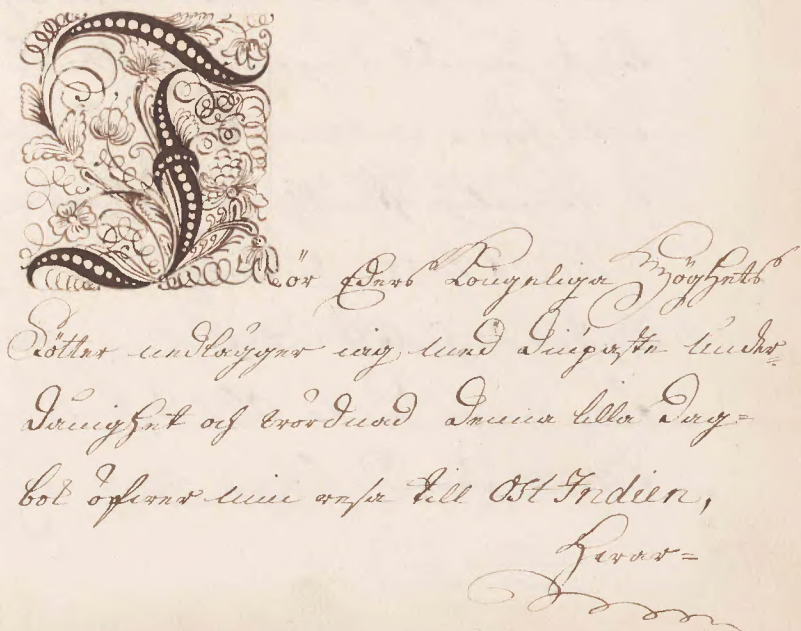 För Eders Kongeliga Höghets
Fötter nedlägger iag, med diupaste under=
dånighet och wördnad denna lilla Dag=
bok öfwer min resa till Ost Indien,
Hwar=